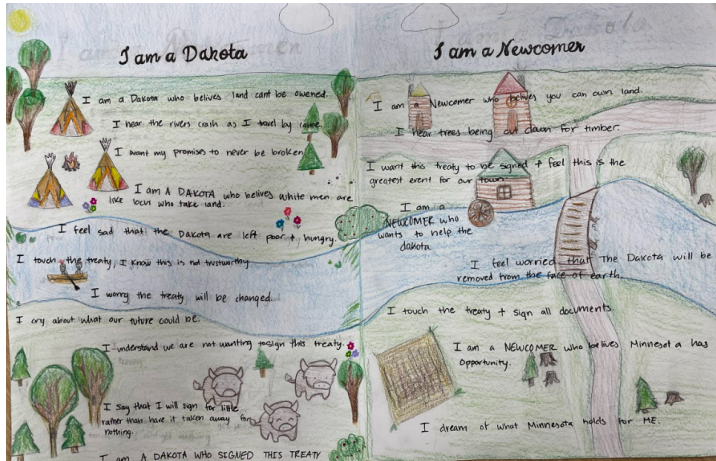 I am a Dakota
I am a Dakota who belives land cant be owened.
I hear the rivers crash as I travel by canoe.
I want my promises to never be broken
I am A DAKOTA who belives white men are
like locus who take land.
I feel sad that the DAKOTA are left poor + hungry.
I touch the treaty, I know this is not trustworthy
I worry the treaty will be changed.
I cry about what our future could be.
I understand we are not wanting to sign this treaty.
I say that I will sign for little
rather than have it taken away for
nothing.
I am A DAKOTA WHO SIGNED THIS TREATY
I am a Newcomer
I am Newcomer who belives you can own land.
I hear trees being cut down for timber.
I want this treaty to be signed + feel this is the
greatest event for our town.
I am a
NEWCOMER who
wants to help the
dakota
I feel worried that The Dakota will be
removed from the face of earth.
I touch the treaty + sign all documents.
I am a NEWCOMER who belives Minnesota has
Opportunity.
I dream of what Minnesota holds for ME.